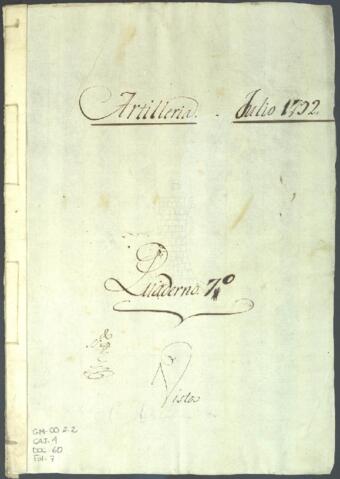 Artilleria. Julio 1792.
Quaderno. 7.º
Vistos
GM-OO 2.2
CAJ. 1
DOC. 60
Fol. 7